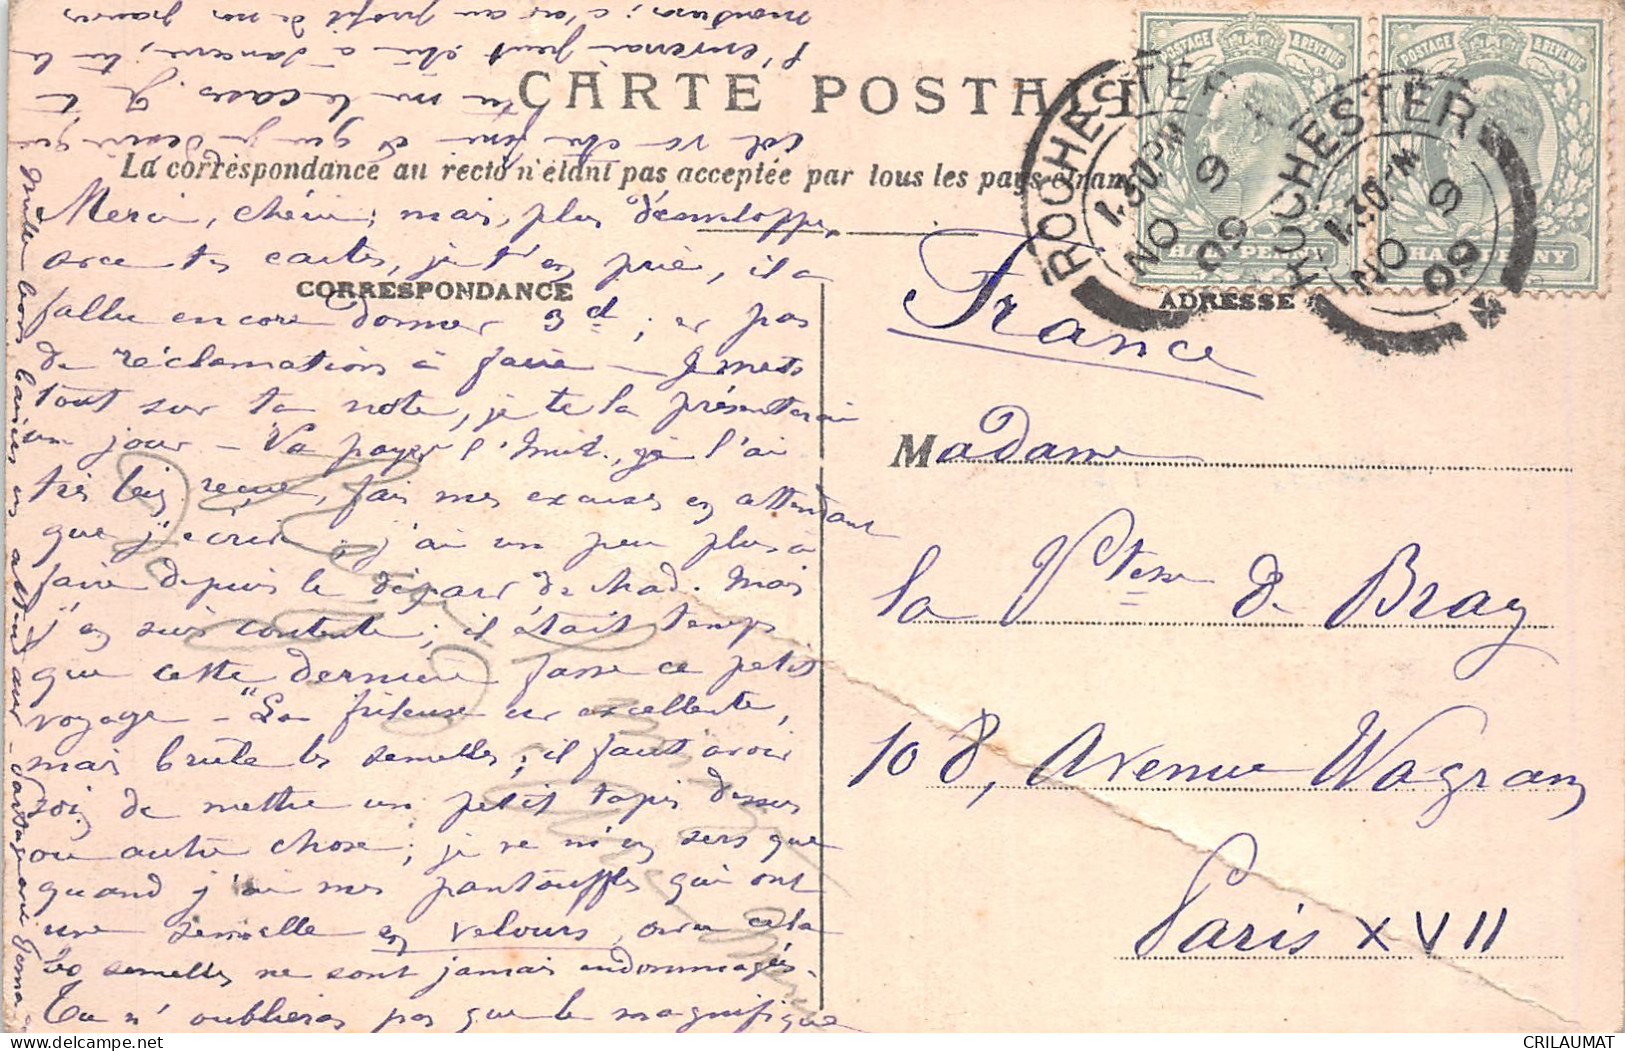 CARTE POSTALE
La correspondance au recto n'étant pas acceptée par tous les pays étrangers
CORRESPONDANCE
ADRESSE
POSTAGE & REVENUE
POSTAGE & REVENUE
HALFPENNY
HALFPENNY
ROCHESTER
1.30 PM
NO 9
09
ROCHESTER
1.30 PM
NO 9
09
France
Madame
la Vtesse de Bray
108, Avenue Wagram
Paris XVII
Merci, chérie; mais, plus d'enveloppes
avec tes cartes, je t'en prie, il a
fallu encore donner 3d; et pas
de réclamations à faire — Je mets
tout sur ta note, je te la présenterai
un jour — Va payer l', je l'ai
très bien reçue, fais mes excuses en attendant
que j'écrive; j'ai un peu plus à
faire depuis le départ de Mad. Mais
j'en suis contente; il était temps
que cette dernière fasse ce petit
voyage — "La frileuse est excellente,
mais brûle les semelles; il faut avoir
soin de mettre un petit tapis dessus
ou autre chose; je ne m'en sers que
quand j'ai mes pantouffles qui ont
une semelle en velours, avec cela
les semelles ne sont jamais endommagées.
Tu n'oublieras pas que le magnifique
col va être fini et que je désire que
tu me le cases. Je
l'enverrai peut être à tu le
montreras; c'est au profit de nos pauvres
Mille bons baisers en attendant
CRILAUMAT